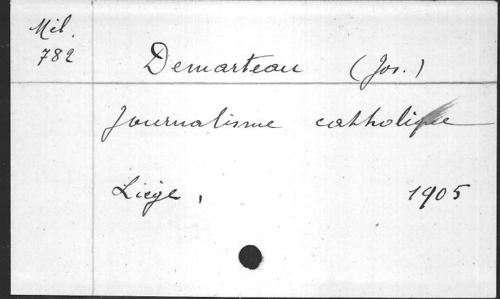 Mél.
782
Demarteau (Jos.)
Journalisme catholique
Liége, 1905